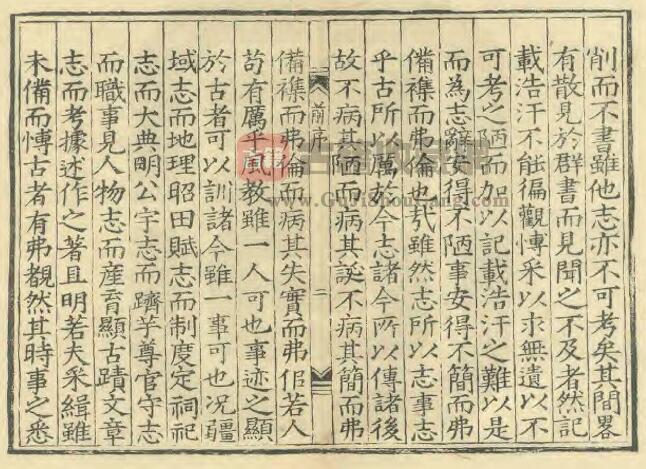 削而不書雖他志亦不可考矣其間畧
有散見於群書而見聞之不及者然記
載浩汗不能徧觀博采以求無遺以不
可考之陋而加以記載浩汗之難以是
而為志辭安得不陋事安得不簡而弗
備襍而弗倫也㢤雖然志所以志事志
乎古所以厲於今志諸今所以傳諸後
故不病其陋而病其誕不病其簡而弗
前序
二
備襍而弗倫而病其失實而弗信若人
苟有厲乎風教雖一人可也事迹之顯
於古者可以訓諸今雖一事可也况疆
域志而地理昭田賦志而制度定祠祀
志而大典明公宇志而躋羊尊官守志
而職事見人物志而産育顯古蹟文章
志而考據述作之著且明若夫采緝雖
未備而愽古者有弗覩然其時事之悉
www.GuJiShouCang.com